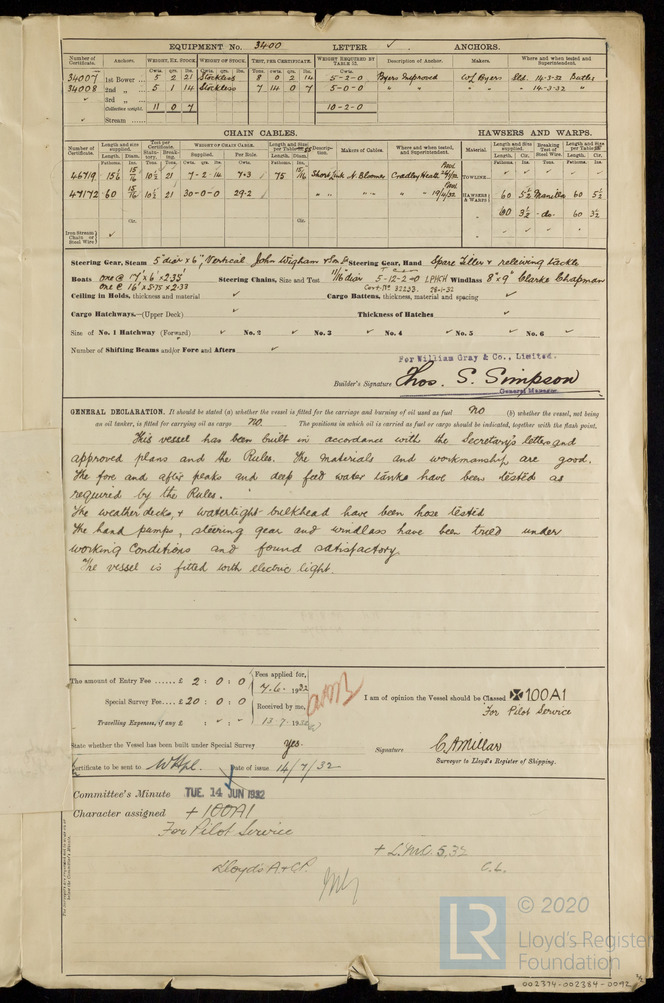 EQUIPMENT No. 3400 LETTER ✓ ANCHORS.
Number of Certificate. Anchors. WEIGHT, EX. STOCK. WEIGHT OF STOCK. TEST, PER CERTIFICATE. WEIGHT REQUIRED BY TABLE 22. Description of Anchor. Makers. Where and when tested and Superintendent.
Cwts. qrs. lbs. Cwts. qrs. lbs. Tons. cwts. qrs. lbs. Cwts.
34007 1st Bower ... 5 2 21 Stockless 8 0 2 14 5-2-0 Byers Improved W.L. Byers Sld. 14-3-32 Butler
34008 2nd „ ... 5 1 14 Stockless 7 14 0 7 5-0-0 " " " " 14-3-32 "
✓ 3rd „ ✓
Collective weight. 11 0 7 10-2-0
✓ Stream ... ✓
CHAIN CABLES. HAWSERS AND WARPS.
Number of Certificate. Length and size supplied. Test per Certificate. WEIGHT OF CHAIN CABLE. Length and Size per Table 22 Description. Makers of Cables. Where and when tested, and Superintendent. Material. Length and Size supplied. Breaking Test of Steel Wire. Length and Size per Table 22
Length. Diam. Statutory. Breaking. Supplied. Per Rule. Length. Diam. Length. Cir. Length. Cir.
Fathoms. Ins. Tons. Tons. Cwts. qrs. lbs. Cwts. Fathoms. Ins. Fathoms. Ins. Tons. Fathoms. Ins.
46719 15½ 15/16 10½ 21 7-2-14 7.3 75 15/16 Short Link N. Bloomer Cradley Heath TOWLINE... ✓ ✓ ✓ ✓ ✓
47172 60 15/16 10½ 21 30-0-0 29.2 " " " " 19/4/32 HAWSERS & WARPS 60 5½ Manilla 60 5½
60 3½ -do- 60 3½
Iron Stream Chain or Steel Wire ✓ Cir. Cir.
Steering Gear, Steam 5" diar × 6", Vertical John Wigham & Sons Ld Steering Gear, Hand Spare Tiller & relieving tackle
Boats one @ 17' × 6' × 2.35' Steering Chains, Size and Test 11/16" diar 5-12-2-0 LPHCH Windlass 8" × 9" Clarke Chapman
one @ 16' × 5.75 × 2.33 Cert. No 32233. 28-1-32
Ceiling in Holds, thickness and material ✓ Cargo Battens, thickness, material and spacing ✓
Cargo Hatchways.—(Upper Deck) ✓ Thickness of Hatches ✓
Size of No. 1 Hatchway (Forward) ✓ No. 2 ✓ No. 3 ✓ No. 4 ✓ No. 5 ✓ No. 6 ✓
Number of Shifting Beams and/or Fore and Afters ✓
For William Gray & Co., Limited.
Builder's Signature Thos. S. Simpson
General Manager
GENERAL DECLARATION. It should be stated (a) whether the vessel is fitted for the carriage and burning of oil used as fuel no (b) whether the vessel, not being
an oil tanker, is fitted for carrying oil as cargo no. The positions in which oil is carried as fuel or cargo should be indicated, together with the flash point.
This vessel has been built in accordance with the Secretary's letters and
approved plans and the Rules. The materials and workmanship are good.
The fore and after peaks and deep feed water tanks have been tested as
required by the Rules.
The weather decks, & watertight bulkhead have been hose tested
The hand pumps, steering gear and windlass have been tried under
working conditions and found satisfactory.
The vessel is fitted with electric light.
The amount of Entry Fee ...... £ 2 : 0 : 0 Fees applied for,
7.6. 1932
Special Survey Fee .... £ 20 : 0 : 0 Received by me,
Travelling Expenses, if any £ : ✓ : ✓ 13.7.1932
I am of opinion the Vessel should be Classed ✠ 100A1
For Pilot Service
State whether the Vessel has been built under Special Survey Yes.
Signature C A Millar
Surveyor to Lloyd's Register of Shipping.
Certificate to be sent to W Hpl. Date of issue 14/7/32
Committee's Minute TUE. 14 JUN 1932
Character assigned + 100A1
For Pilot Service
+ L.M.C. 5,32
Lloyd's A & C.P. C.L.
© 2020
LR
Lloyd's Register
Foundation
002374-002384-0092